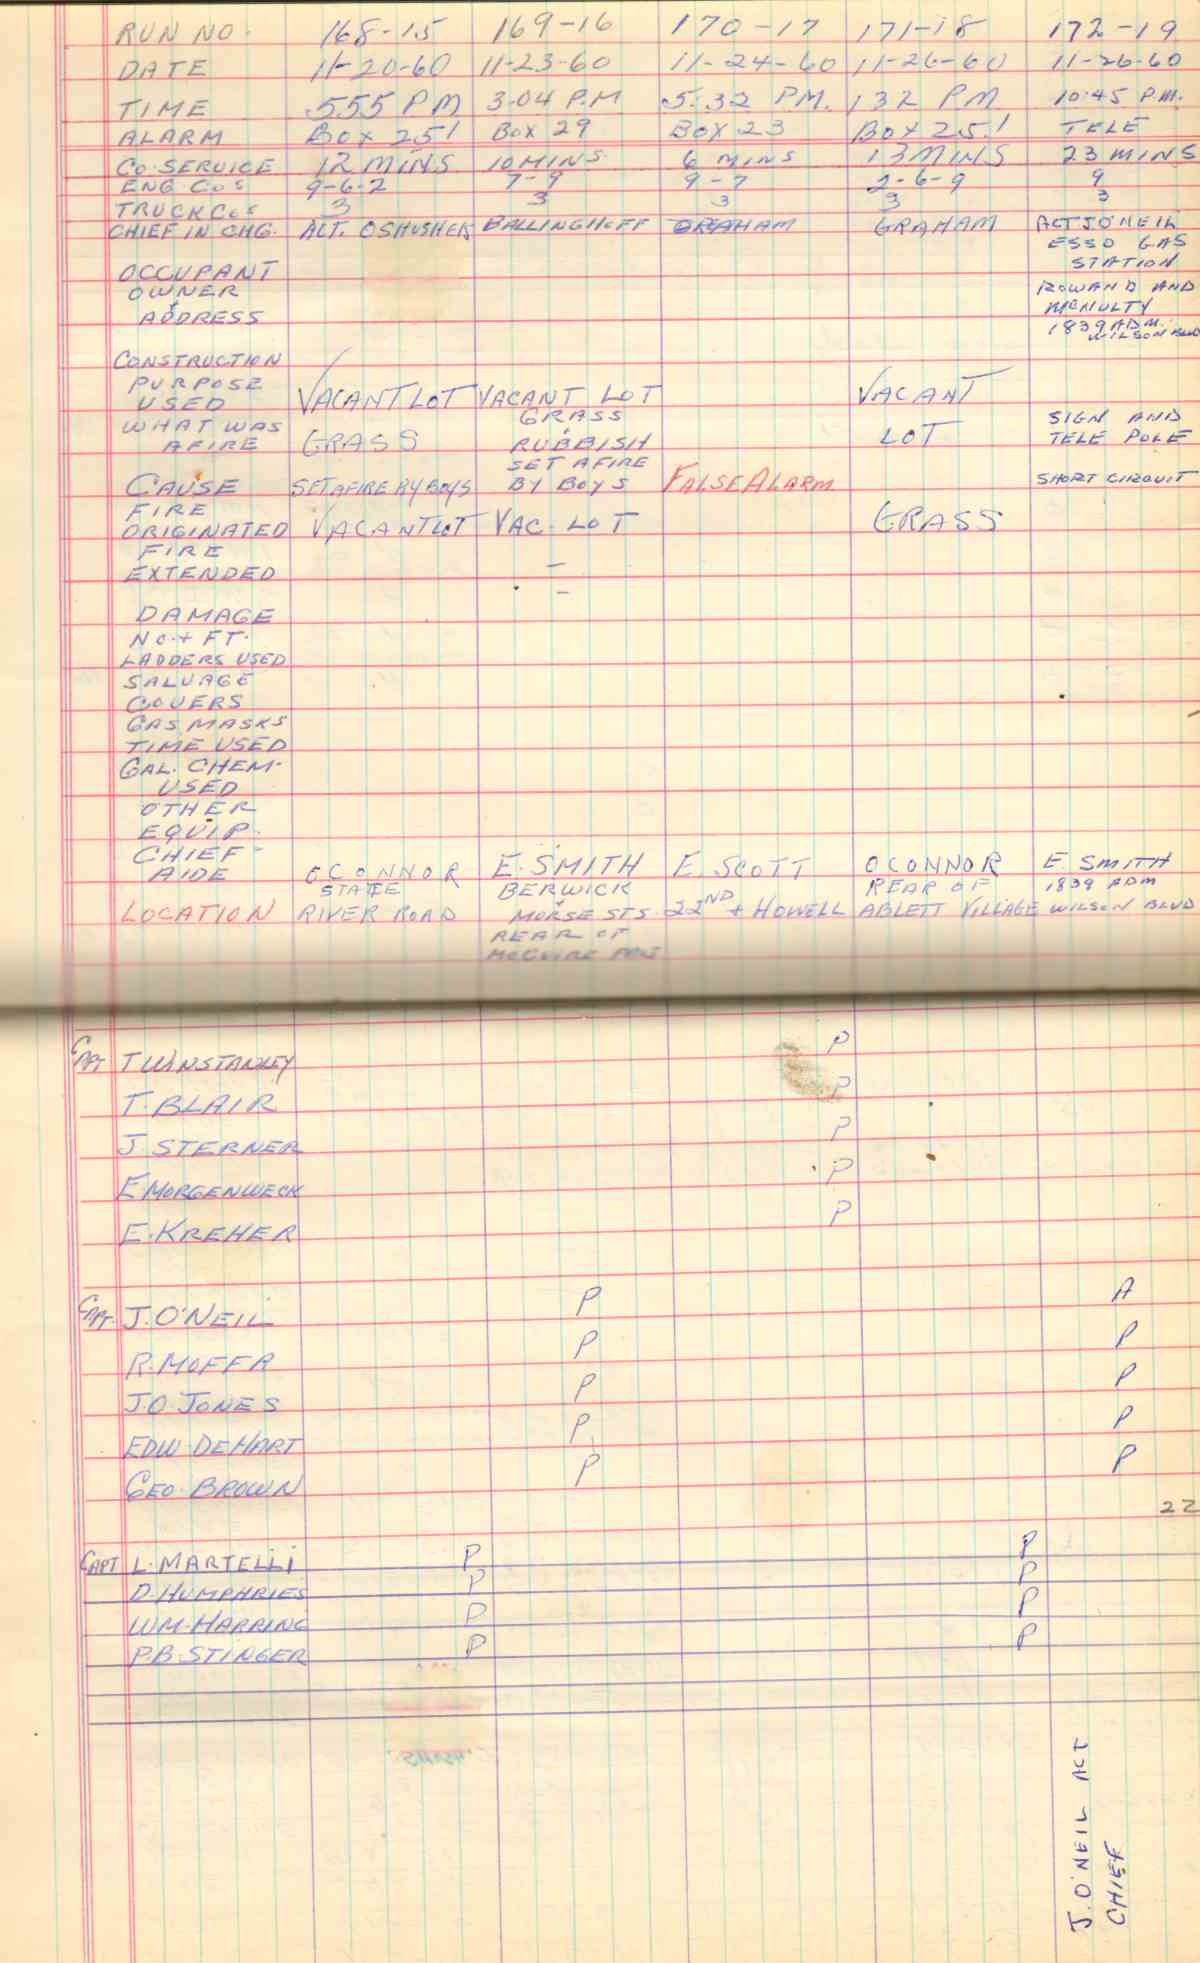 RUN NO. 168-15 169-16 170-17 171-18 172-19
DATE 11-20-60 11-23-60 11-24-60 11-26-60 11-26-60
TIME 555 PM 3-04 P.M 5:32 PM. 132 PM 10:45 P.M.
ALARM BOX 251 BOX 29 BOX 23 BOX 251 TELE
CO. SERVICE 12 MINS 10 MINS 6 MINS 13 MINS 23 MINS
ENG. COS 9-6-2 7-9 9-7 2-6-9 9
TRUCK COS 3 3 3 3 3
CHIEF IN CHG. ACT. BALLINGHOFF GRAHAM GRAHAM ACT J O'NEIL
ESSO GAS
OCCUPANT STATION
OWNER ROWAND AND
& MCNULTY
ADDRESS 1839 ADM.
WILSON BLVD
CONSTRUCTION
PURPOSE
USED VACANT LOT VACANT LOT VACANT
WHAT WAS GRASS SIGN AND
AFIRE GRASS RUBBISH LOT TELE POLE
SET AFIRE
CAUSE SET AFIRE BY BOYS BY BOYS FALSE ALARM SHORT CIRCUIT
FIRE
ORIGINATED VACANT LOT VAC-LOT GRASS
FIRE
EXTENDED –
–
DAMAGE
NO. + FT.
LADDERS USED
SALVAGE
COVERS
GAS MASKS
TIME USED
GAL. CHEM-
USED
OTHER
EQUIP.
CHIEF
AIDE OCONNOR E. SMITH E. SCOTT OCONNOR E SMITH
STATE BERWICK REAR OF 1839 ADM
LOCATION RIVER ROAD + MORSE STS. 22ND + HOWELL ABLETT VILLAGE WILSON BLVD
REAR OF
MCGUIRE
CAPT T WINSTANLEY P
T. BLAIR P
J. STERNER P
E MORGENWECK P
E. KREHER P
CAPT. J. O'NEIL P A
R. MOFFA P P
J.O. JONES P P
EDW. DEHART P P
GEO. BROWN P P
22
CAPT L. MARTELLI P P
D. HUMPHRIES P P
WM. HARRING P P
P.B. STINGER P P
J. O'NEIL ACT
CHIEF